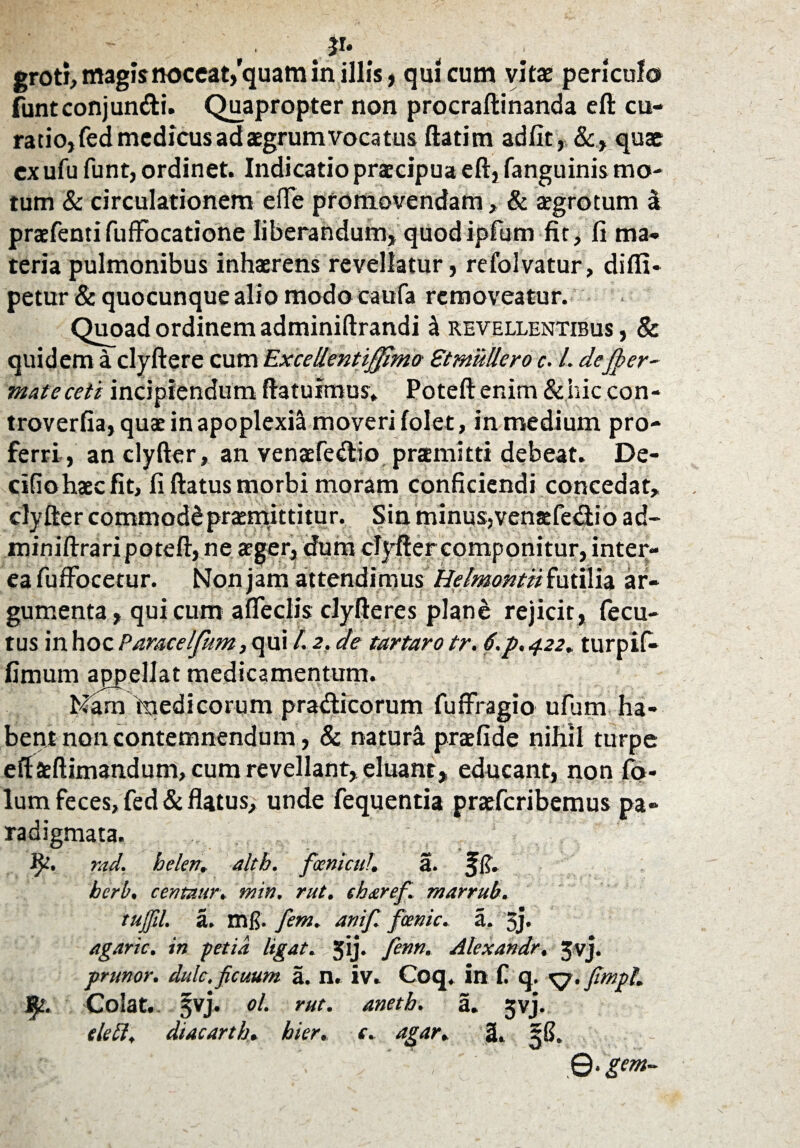 31.
groti, magis noceat, quam in illis, qui cum vitæ periculo
ſunt conjuncti. Quapropter non procraſtinanda eſt cu-
ratio, ſed medicus ad ægrum vocatus ſtatim adſit, &, quæ
ex uſu ſunt, ordinet. Indicatio præcipua eſt, ſanguinis mo-
tum & circulationem eſſe promovendam, & ægrotum à
præſenti ſuffocatione liberandum, quod ipſum fit, ſi ma-
teria pulmonibus inhærens revellatur, reſolvatur, diſſi-
petur & quocunque alio modo cauſa removeatur.
Quoad ordinem adminiſtrandi à REVELLENTIBUS, &
quidem à clyſtere cum Excellentiſſimo Etmüllero c. l. de ſper-
mate ceti incipiendum ſtatuimus. Poteſt enim & hic con-
troverſia, quæ in apoplexiâ moveri ſolet, in medium pro-
ferri, an clyſter, an venæſectio præmitti debeat. De-
ciſio hæc fit, ſi ſtatus morbi moram conficiendi concedat,
clyſter commodè præmittitur. Sin minus, venæſectio ad-
miniſtrari poteſt, ne æger, dum clyſter componitur, inter-
ea ſuffocetur. Non jam attendimus Helmontii futilia ar-
gumenta, qui cum aſſeclis clyſteres planè rejicit, ſecu-
tus in hoc Paracelſum, qui l. 2. de tartaro tr. 6. p. 422. turpiſ-
ſimum appellat medicamentum.
Nam medicorum practicorum ſuffragio uſum ha-
bent non contemnendum, & naturâ præſide nihil turpe
eſt æſtimandum, cum revellant, eluant, educant, non ſo-
lum feces, ſed & flatus, unde ſequentia præſcribemus pa-
radigmata.
℞. rad. helen. alth. fœnicul. ā. ℥ß.
herb. centaur. min. rut. chæref. marrub.
tuſſil. ā. mß. ſem. aniſ. fœnic. ā. ʒj.
agaric. in petiâ ligat. ʒij. ſenn. Alexandr. ʒvj.
prunor. dulc. ficuum ā. n. iv. Coq. in ſ. q. 🜄. ſimpl.
℞. Colat. ℥vj. ol. rut. aneth. ā. ʒvj.
elect. diacarth. hier. c. agar. ā. ℥ß.
🜔. gem-